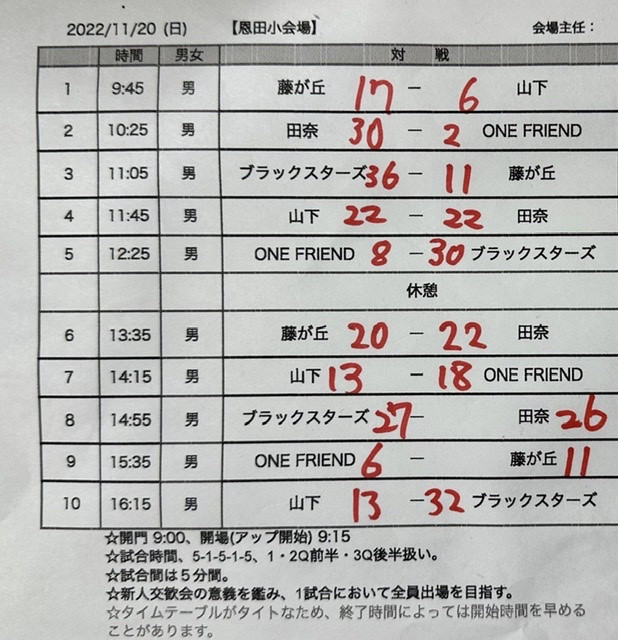 2022/11/20 (日) 【恩田小会場】 会場主任：
時間 男女 対 戦
1 9:45 男 藤が丘 17 － 6 山下
2 10:25 男 田奈 30 － 2 ONE FRIEND
3 11:05 男 ブラックスターズ 36 － 11 藤が丘
4 11:45 男 山下 22 － 22 田奈
5 12:25 男 ONE FRIEND 8 － 30 ブラックスターズ
休憩
6 13:35 男 藤が丘 20 － 22 田奈
7 14:15 男 山下 13 － 18 ONE FRIEND
8 14:55 男 ブラックスターズ 27 － 田奈 26
9 15:35 男 ONE FRIEND 6 － 藤が丘 11
10 16:15 男 山下 13 － 32 ブラックスターズ
☆開門 9:00、開場(アップ開始) 9:15
☆試合時間、5-1-5-1-5、1・2Q前半・3Q後半扱い。
☆試合間は５分間。
☆新人交歓会の意義を鑑み、1試合において全員出場を目指す。
☆タイムテーブルがタイトなため、終了時間によっては開始時間を早める
ことがあります。